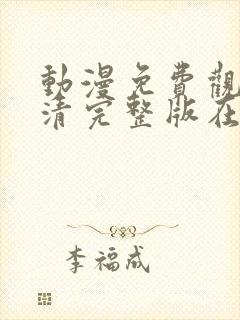 動漫免費觀
清完整版在
李福成